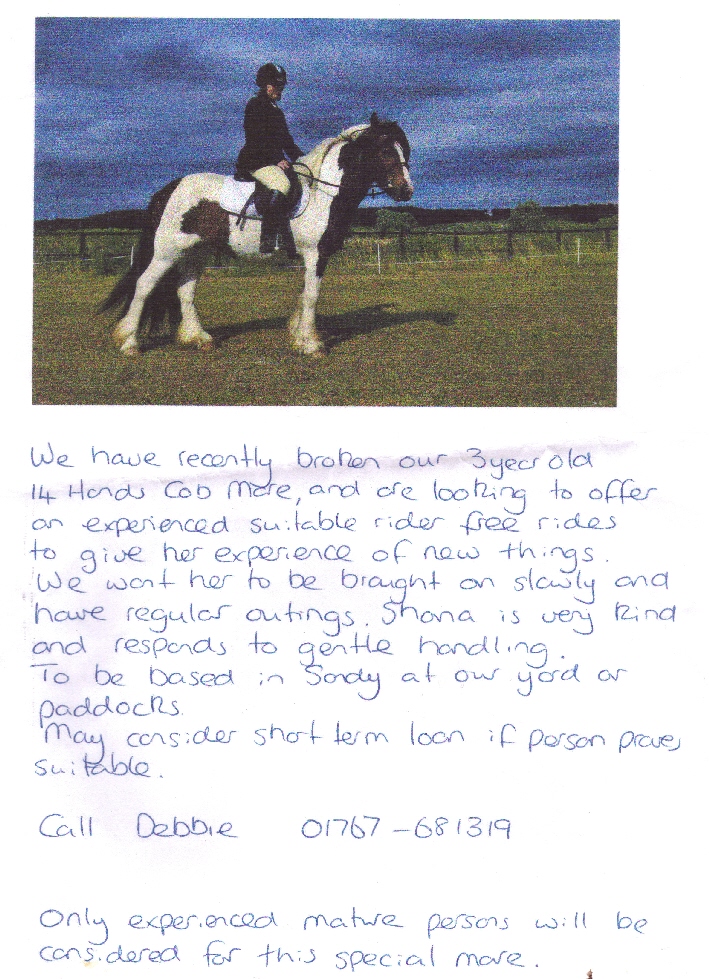 We have recently broken our 3 year old
14 Hands Cob Mare, and are looking to offer
an experienced suitable rider free rides
to give her experience of new things.
We want her to be brought on slowly and
have regular outings. Shona is very kind
and responds to gentle handling.
To be based in Sandy at our yard or
paddocks.
May consider short term loan if person proves
suitable.
Call Debbie 01767-681319
Only experienced mature persons will be
considered for this special mare.